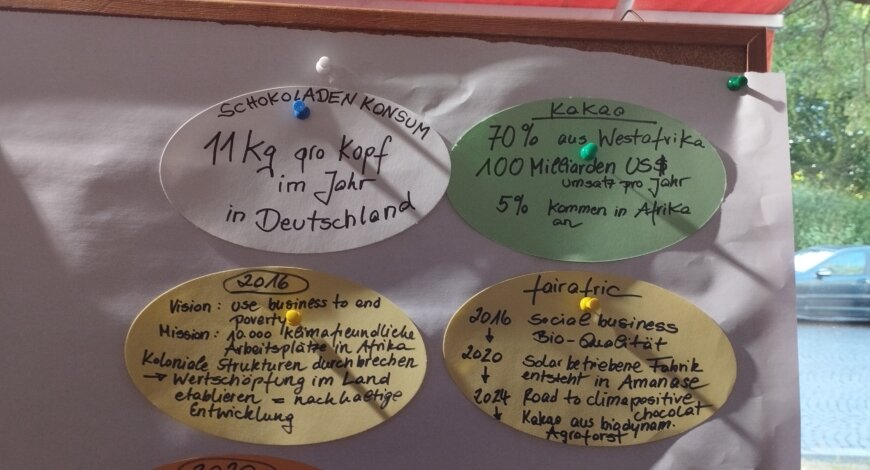 SCHOKOLADEN KONSUM
11 kg pro Kopf
im Jahr
in Deutschland
Kakao
70% aus Westafrika
100 Milliarden US$
umsatz pro Jahr
5% kommen in Afrika
an
2016
Vision: use business to end
poverty
Mission: 10.000 klimafreundliche
Arbeitsplätze in Afrika
Koloniale Strukturen durchbrechen
→ Wertschöpfung im Land
etablieren = nachhaltige
Entwicklung
fairafric
2016 Social business
Bio-Qualität
↓
2020 Solarbetriebene Fabrik
entsteht in Amanase
↓
2024 Road to climapositive
chocolat
↓ Kakao aus biodynam.
Agroforst